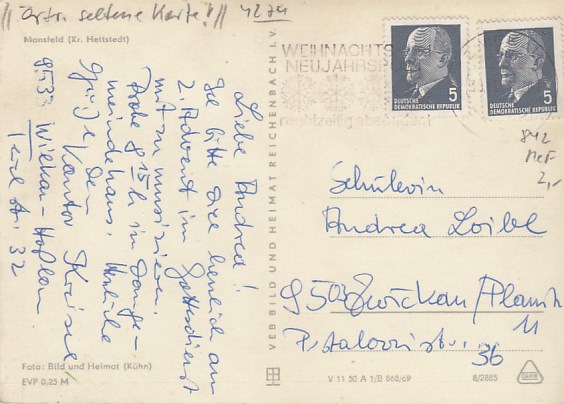 Ortr. seltene Karte! 4274
Mansfeld (Kr. Hettstedt)
Liebe Andrea!
Ich bitte Dich herzlich am
2. Advent im Gottesdienst
mit zu musizieren.
Probe 8 15 h in
meindehaus. Herzliche
Grüße Dein
Kantor
9533 Wilkau-Haßlau
32
Foto: Bild und Heimat (Kühn)
EVP 0,25 M
VEB BILD UND HEIMAT REICHENBACH I. V.
WEIHNACHTS
NEUJAHRSP
rechtzeitig
5
DEUTSCHE
DEMOKRATISCHE REPUBLIK
5
DEUTSCHE
DEMOKRATISCHE REPUBLIK
842
MeF
2,-
Schülerin
Andrea Loibl
9503 Zwickau/Planitz
11
Pestalozzistr. 36
V 11 50 A 1/B 668/69
8/2885